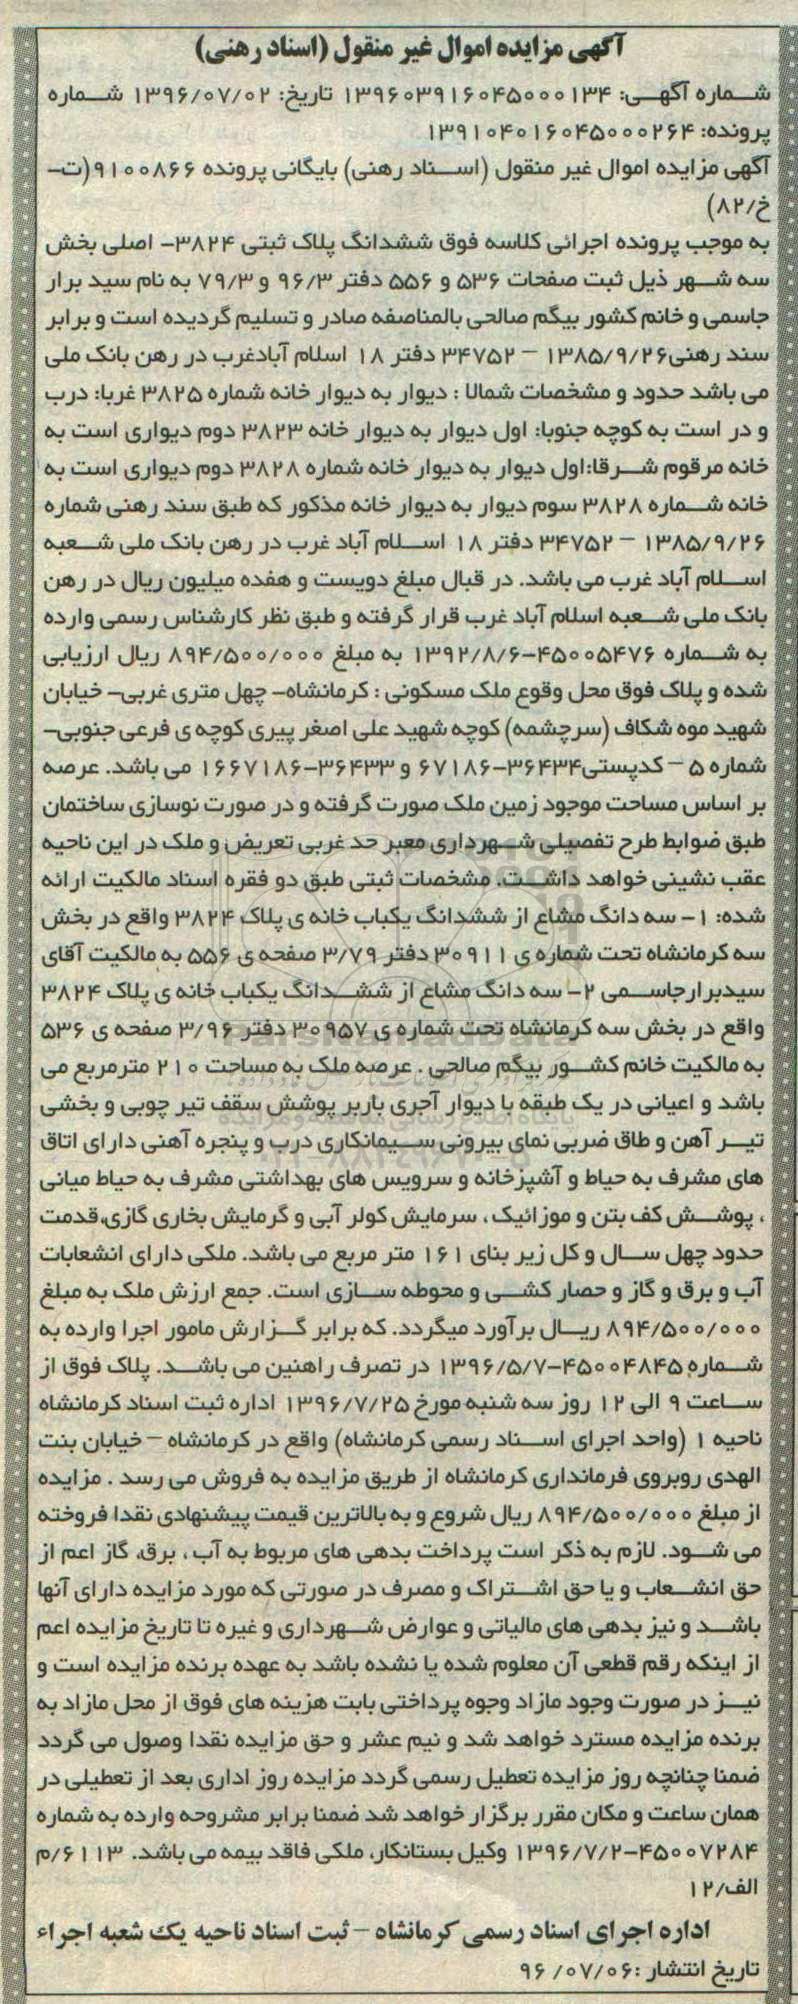 آگهی مزایده اموال غیر منقول (اسناد رهنی)
شماره آگهی: ۱۳۹۶۰۳۹۱۶۰۴۵۰۰۰۱۳۴ تاریخ: ۱۳۹۶/۰۷/۰۲ شماره
پرونده: ۱۳۹۱۰۴۰۱۶۰۴۵۰۰۰۲۶۴
آگهی مزایده اموال غیر منقول (اسناد رهنی) بایگانی پرونده ۹۱۰۰۸۶۶(ت-
خ/۸۲)
به موجب پرونده اجرائی کلاسه فوق ششدانگ پلاک ثبتی ۳۸۲۴- اصلی بخش
سه شهر ذیل ثبت صفحات ۵۳۶ و ۵۵۶ دفتر ۹۶/۳ و ۷۹/۳ به نام سید برار
جاسمی و خانم کشور بیگم صالحی بالمناصفه صادر و تسلیم گردیده است و برابر
سند رهنی۱۳۸۵/۹/۲۶ – ۳۴۷۵۲ دفتر ۱۸ اسلام آبادغرب در رهن بانک ملی
می باشد حدود و مشخصات شمالا : دیوار به دیوار خانه شماره ۳۸۲۵ غربا: درب
و در است به کوچه جنوبا: اول دیوار به دیوار خانه ۳۸۲۳ دوم دیواری است به
خانه مرقوم شرقا:اول دیوار به دیوار خانه شماره ۳۸۲۸ دوم دیواری است به
خانه شماره ۳۸۲۸ سوم دیوار به دیوار خانه مذکور که طبق سند رهنی شماره
۱۳۸۵/۹/۲۶ – ۳۴۷۵۲ دفتر ۱۸ اسلام آباد غرب در رهن بانک ملی شعبه
اسلام آباد غرب می باشد. در قبال مبلغ دویست و هفده میلیون ریال در رهن
بانک ملی شعبه اسلام آباد غرب قرار گرفته و طبق نظر کارشناس رسمی وارده
به شماره ۴۵۰۰۵۴۷۶-۱۳۹۲/۸/۶ به مبلغ ۸۹۴/۵۰۰/۰۰۰ ریال ارزیابی
شده و پلاک فوق محل وقوع ملک مسکونی : کرمانشاه- چهل متری غربی- خیابان
شهید موه شکاف (سرچشمه) کوچه شهید علی اصغر پیری کوچه ی فرعی جنوبی-
شماره ۵ – کدپستی۳۶۴۳۴-۶۷۱۸۶ و ۳۶۴۳۳-۱۶۶۷۱۸۶ می باشد. عرصه
بر اساس مساحت موجود زمین ملک صورت گرفته و در صورت نوسازی ساختمان
طبق ضوابط طرح تفصیلی شهرداری معبر حد غربی تعریض و ملک در این ناحیه
عقب نشینی خواهد داشت. مشخصات ثبتی طبق دو فقره اسناد مالکیت ارائه
شده: ۱- سه دانگ مشاع از ششدانگ یکباب خانه ی پلاک ۳۸۲۴ واقع در بخش
سه کرمانشاه تحت شماره ی ۳۰۹۱۱ دفتر ۳/۷۹ صفحه ی ۵۵۶ به مالکیت آقای
سیدبرارجاسمی ۲- سه دانگ مشاع از ششدانگ یکباب خانه ی پلاک ۳۸۲۴
واقع در بخش سه کرمانشاه تحت شماره ی ۳۰۹۵۷ دفتر ۳/۹۶ صفحه ی ۵۳۶
به مالکیت خانم کشور بیگم صالحی . عرصه ملک به مساحت ۲۱۰ مترمربع می
باشد و اعیانی در یک طبقه با دیوار آجری باربر پوشش سقف تیر چوبی و بخشی
تیر آهن و طاق ضربی نمای بیرونی سیمانکاری درب و پنجره آهنی دارای اتاق
های مشرف به حیاط و آشپزخانه و سرویس های بهداشتی مشرف به حیاط میانی
، پوشش کف بتن و موزائیک ، سرمایش کولر آبی و گرمایش بخاری گازی،قدمت
حدود چهل سال و کل زیر بنای ۱۶۱ متر مربع می باشد. ملکی دارای انشعابات
آب و برق و گاز و حصار کشی و محوطه سازی است. جمع ارزش ملک به مبلغ
۸۹۴/۵۰۰/۰۰۰ ریال برآورد میگردد. که برابر گزارش مامور اجرا وارده به
شماره ۴۵۰۰۴۸۴۵-۱۳۹۶/۵/۷ در تصرف راهنین می باشد. پلاک فوق از
ساعت ۹ الی ۱۲ روز سه شنبه مورخ ۱۳۹۶/۷/۲۵ اداره ثبت اسناد کرمانشاه
ناحیه ۱ (واحد اجرای اسناد رسمی کرمانشاه) واقع در کرمانشاه – خیابان بنت
الهدی روبروی فرمانداری کرمانشاه از طریق مزایده به فروش می رسد . مزایده
از مبلغ ۸۹۴/۵۰۰/۰۰۰ ریال شروع و به بالاترین قیمت پیشنهادی نقدا فروخته
می شود. لازم به ذکر است پرداخت بدهی های مربوط به آب ، برق، گاز اعم از
حق انشعاب و یا حق اشتراک و مصرف در صورتی که مورد مزایده دارای آنها
باشد و نیز بدهی های مالیاتی و عوارض شهرداری و غیره تا تاریخ مزایده اعم
از اینکه رقم قطعی آن معلوم شده یا نشده باشد به عهده برنده مزایده است و
نیز در صورت وجود مازاد وجوه پرداختی بابت هزینه های فوق از محل مازاد به
برنده مزایده مسترد خواهد شد و نیم عشر و حق مزایده نقدا وصول می گردد
ضمنا چنانچه روز مزایده تعطیل رسمی گردد مزایده روز اداری بعد از تعطیلی در
همان ساعت و مکان مقرر برگزار خواهد شد ضمنا برابر مشروحه وارده به شماره
۴۵۰۰۷۲۸۴-۱۳۹۶/۷/۲ وکیل بستانکار، ملکی فاقد بیمه می باشد. ۶۱۱۳/م
الف/۱۲
اداره اجرای اسناد رسمی کرمانشاه – ثبت اسناد ناحیه یک شعبه اجراء
تاریخ انتشار :۹۶ /۰۷/۰۶